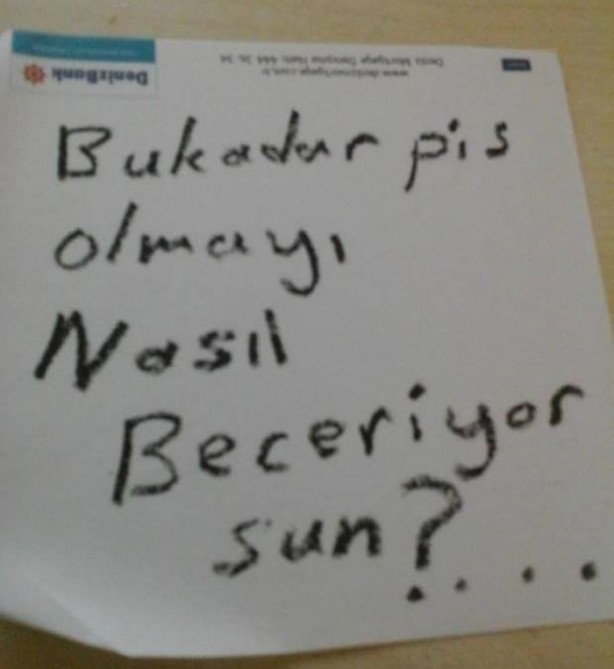 DenizBank
www.denizmortgage.com.tr
Deniz Mortgage Danışma Hattı 444 36 34
Bukadar pis
olmayı
Nasıl
Beceriyor
sun?....